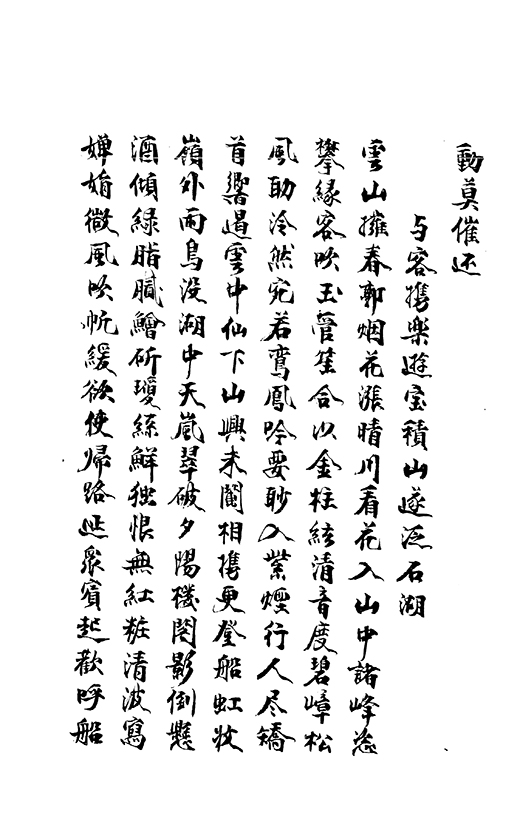 動莫催还
与客攜樂遊宝積山遂泛石湖
雲山擁春郭烟花漲晴川看花入山中諸峰恣
攀緣客吹玉管笙合以金柱絃清音度碧嶂松
風助泠然宛若鸞鳳吟要眇入紫煙行人尽矯
首響遏雲中仙下山興未闌相攜更登船虹收
嶺外雨鳥没湖中天嵐翠破夕陽樓閣影倒懸
酒傾綠脂膩鱠斫瓊絲鮮独恨無紅粧清波寫
嬋娟微風吹帆緩欲使帰路迟衆賓起歡呼船